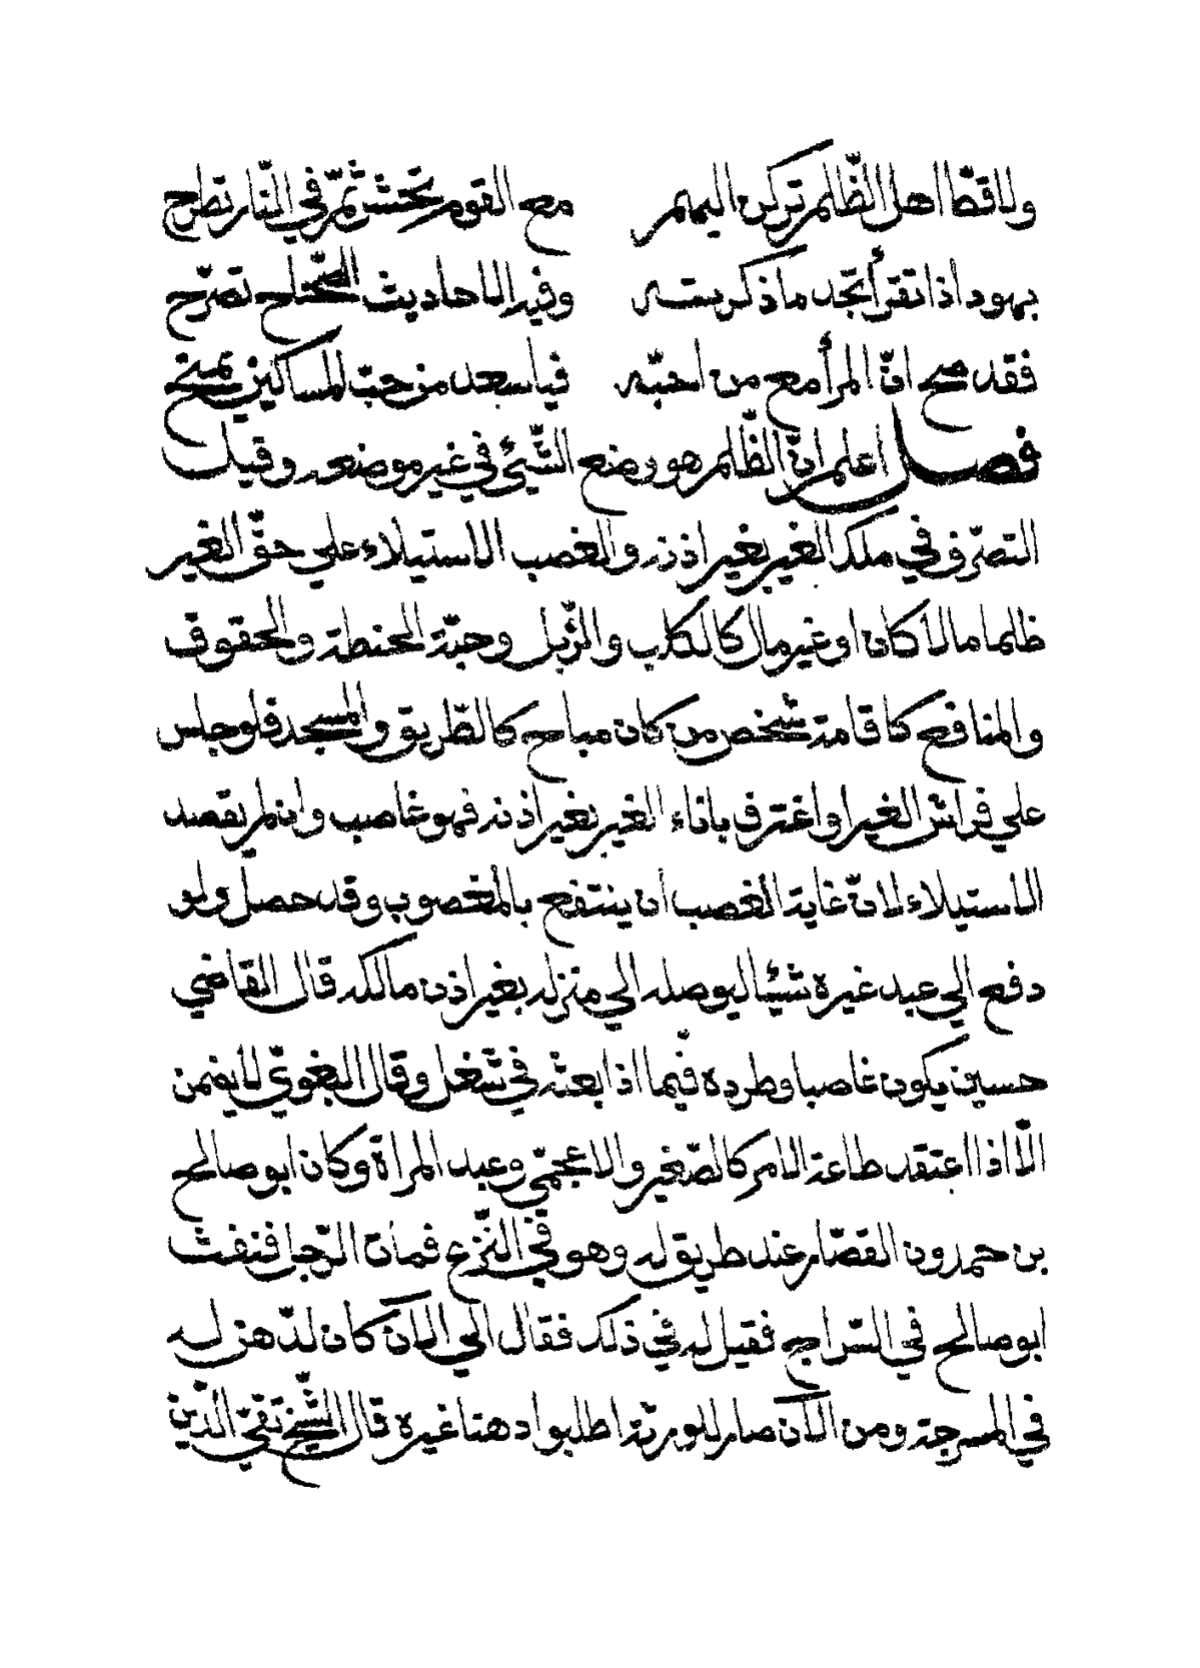 ولا قطّ اهل الظّلم تركن اليهم مع القوم تحشر ثمّ في النّار تطرح
بهود اذا تقرأ تجد ما ذكرته وفي الاحاديث الصّحاح تصرّح
فقد صح انّ المرأ مع من احبّه فيا سعد من حبّ المساكين يمنح
فصل اعلم انّ الظّلم هو وضع الشّيئ في غير موضعه وقيل
التصرّف في ملك الغير بغير اذنه والغصب الاستيلاء علي حقّ الغير
ظلما مالا كان او غير مال كالكلب والزّبل وحبّة الحنطة والحقوق
والمنافع كاقامة شخص من كان مباح كالطّريق والمسجد فلو جلس
علي فراش الغير او اغترف باناء الغير بغير اذنه فهو غاصب وان لم يقصد
الاستيلاء لانّ غاية الغصب ان ينتفع بالمغصوب وقد حصل ولو
دفع الي عبد غيره شيئا ليوصله الي منزله بغير اذن مالكه قال القاضي
حسين يكون غاصبا وطرده فيما اذا بعثه في شغل وقال البغويّ لا يضمن
الّا اذا اعتقد طاعة الامر كالصّغير والاعجميّ وعبد المراة وكان ابو صالح
بن حمدون القصّار عند طريق له وهو في النّزع فمات الرّجل فنفث
ابو صالح في السّراج فقيل له في ذلك فقال الي الآن كان لدّهن له
في المسرجة ومن الآن صار للورثة اطلبوا دهنا غيره قال الشّيخ تقيّ الدّين